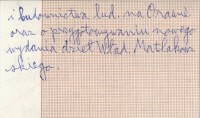 i budownictwa lud. na Orawie
oraz o przygotowywaniu nowego
wydania dzieł Wład. Matlakow
skiego.